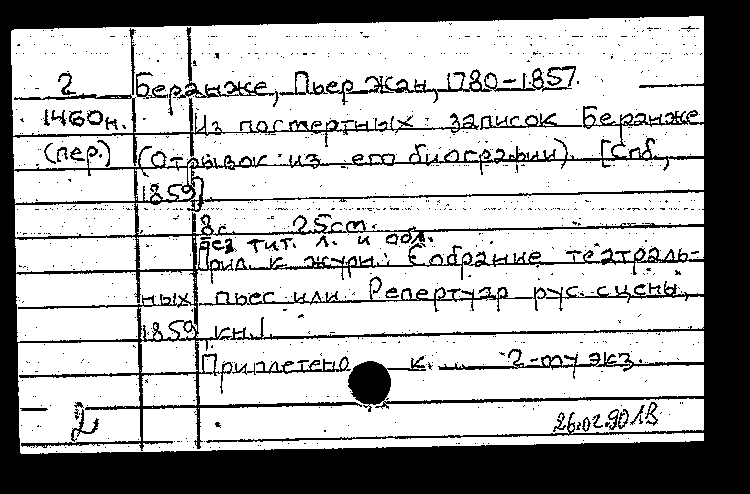 2 Беранже, Пьер Жан, 1780-1857.
1460н. Из постертных записок Беранже
(пер.) (Отрывок из его биографии). [Спб,
1859]
8с 25cm.
Без тит. л. и обл.
Прил. к журн.: Собрание театраль-
ных пьес или Репертуар рус. сцены,
1859, кн.I.
Приплетено к.... 2-му экз.
2 26.02.90